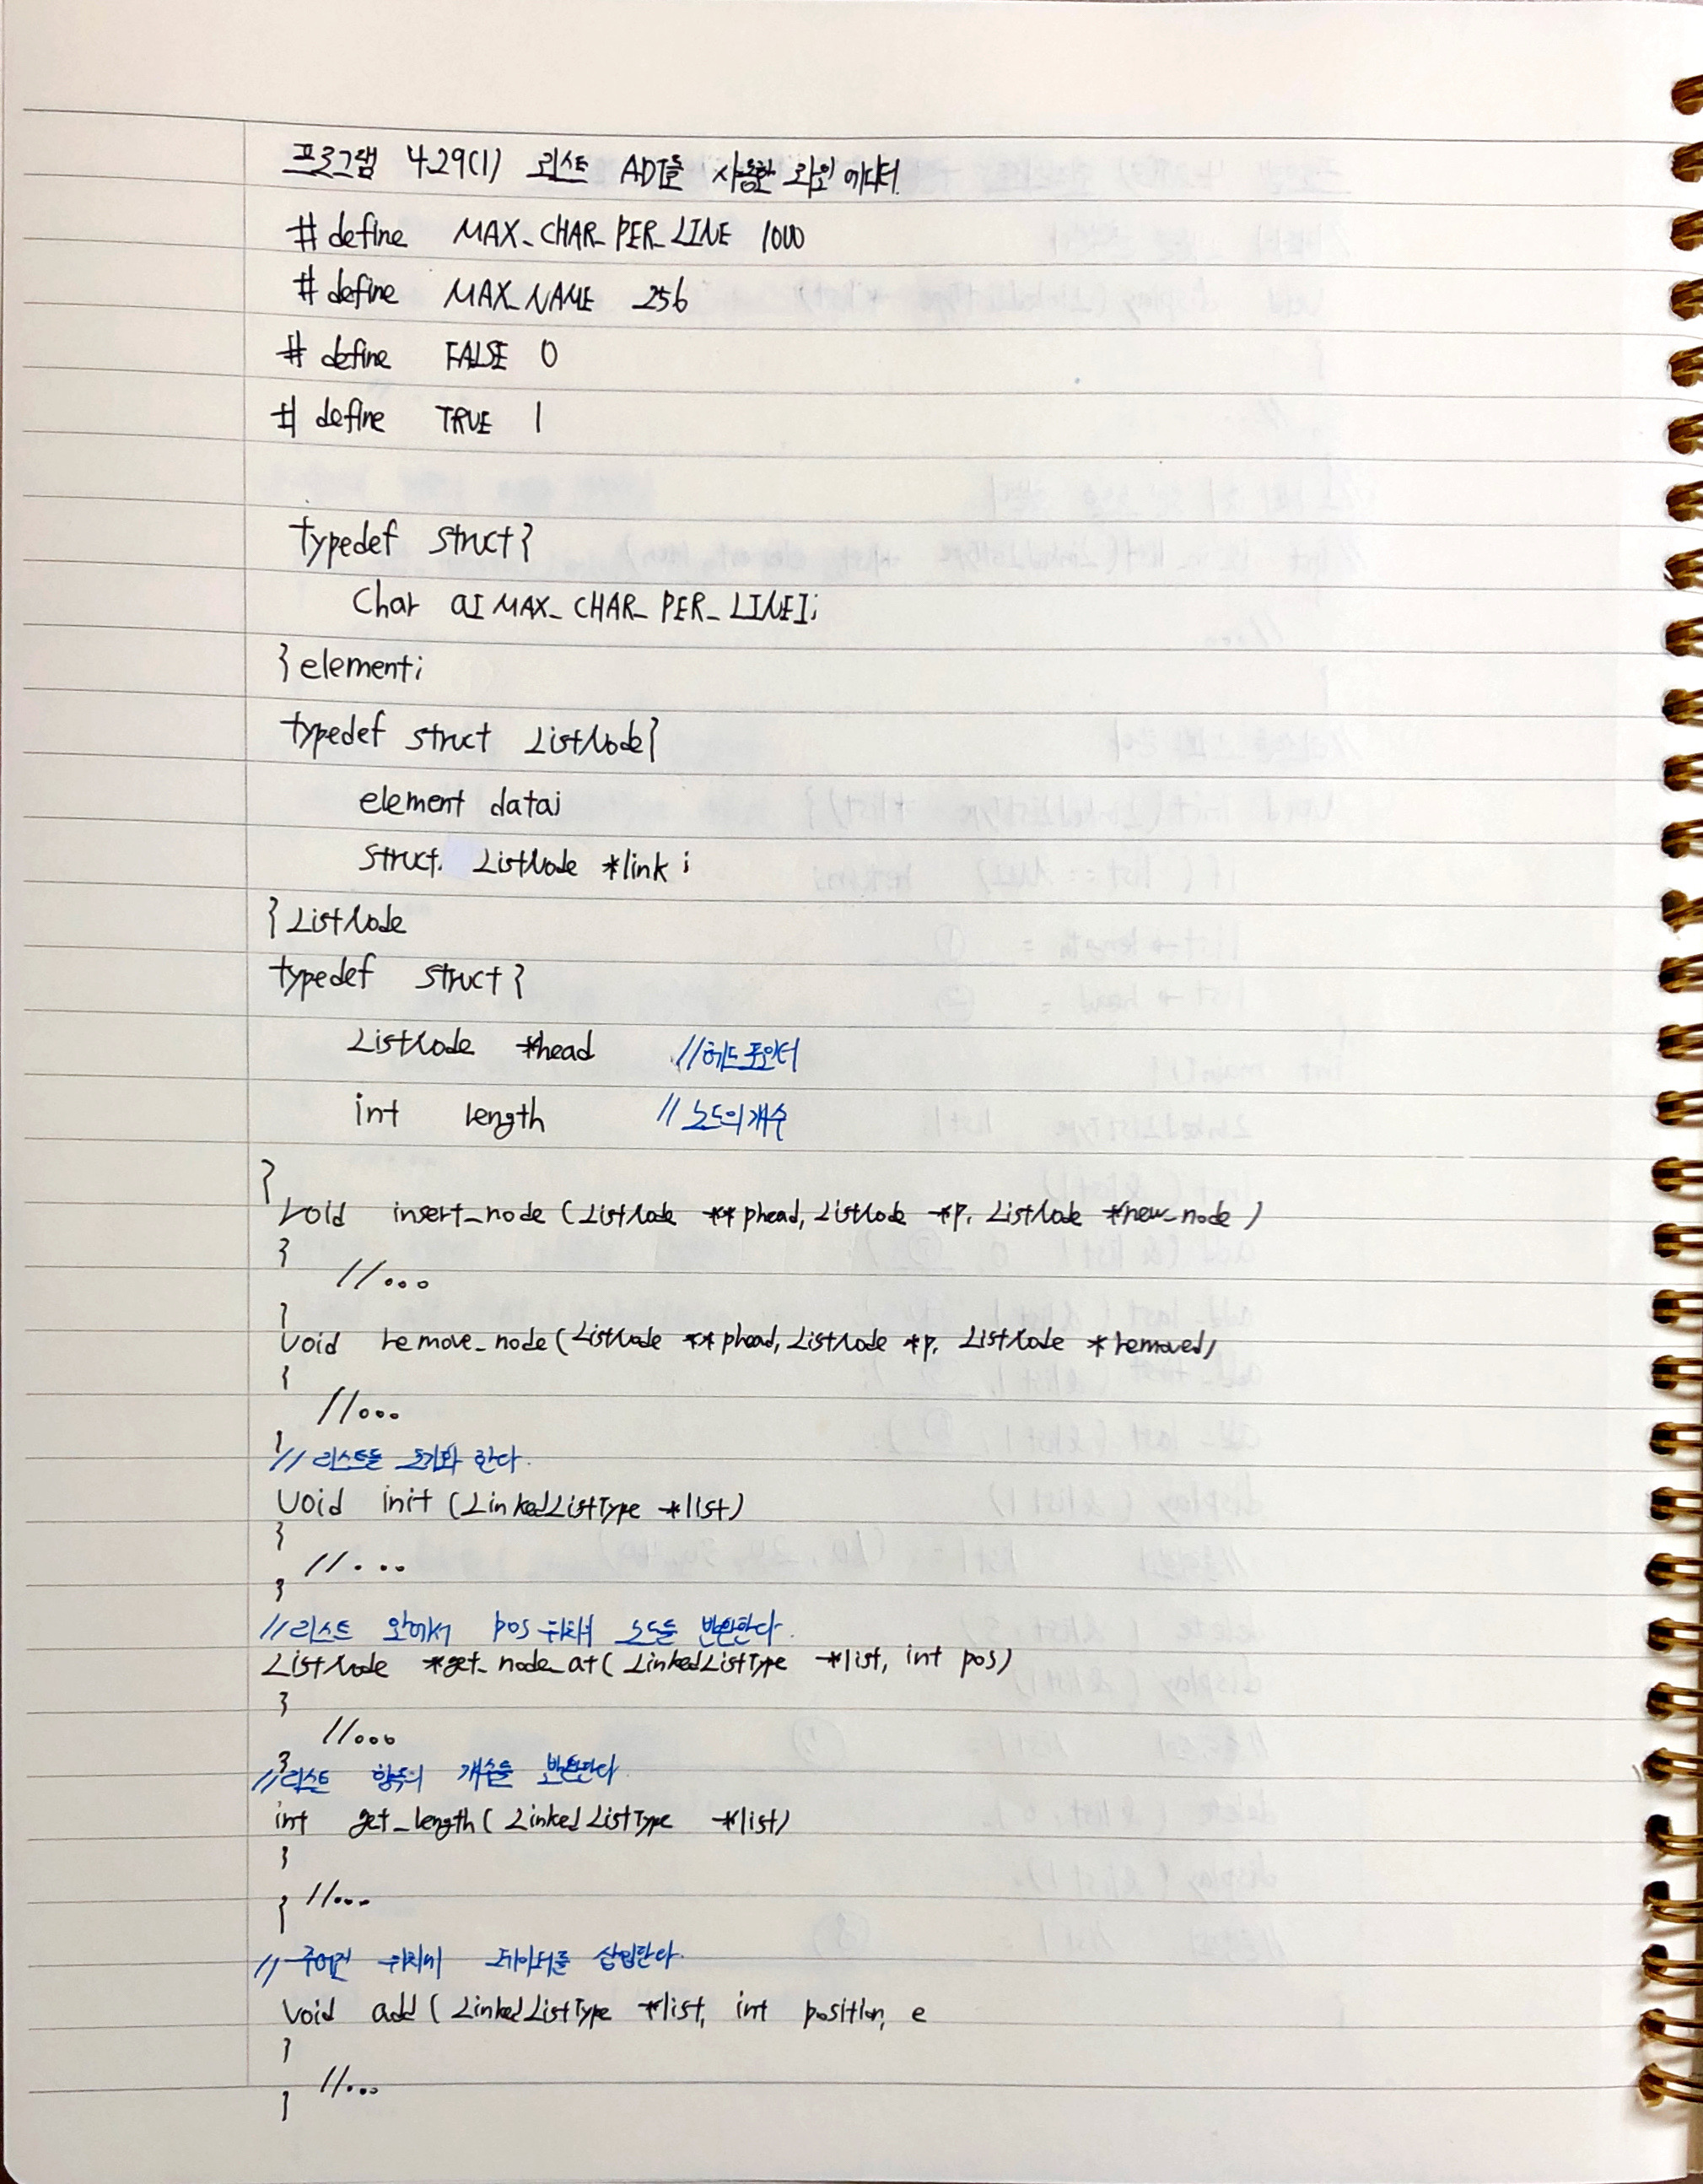 프로그램 4.29(1) 리스트 ADT를 사용한 라인 에디터
# define MAX_CHAR_PER_LINE 1000
# define MAX_NAME 256
# define FALSE 0
# define TRUE 1
typedef struct{
Char a[MAX_CHAR_PER_LINE];
} element;
typedef struct ListNode{
element data;
struct. ListNode *link;
} ListNode
typedef struct {
ListNode *head //헤드포인터
int length //노드의개수
}
void insert_node (ListNode **phead, ListNode *p, ListNode *new_node )
{
//...
}
void remove_node(ListNode **phead, ListNode *p, ListNode *removed)
{
//...
}
// 리스트를 초기화 한다.
void init (LinkedListType *list)
{
//...
}
//리스트 안에서 pos 위치의 노드를 반환한다.
ListNode *get_node_at( LinkedListType *list, int pos)
{
//...
}
//리스트 항목의 개수를 반환한다.
int get_length( LinkedListType *list)
{
//...
}
// 주어진 위치에 데이터를 삽입한다.
void add( LinkedListType *list, int position, e
{
//...
}